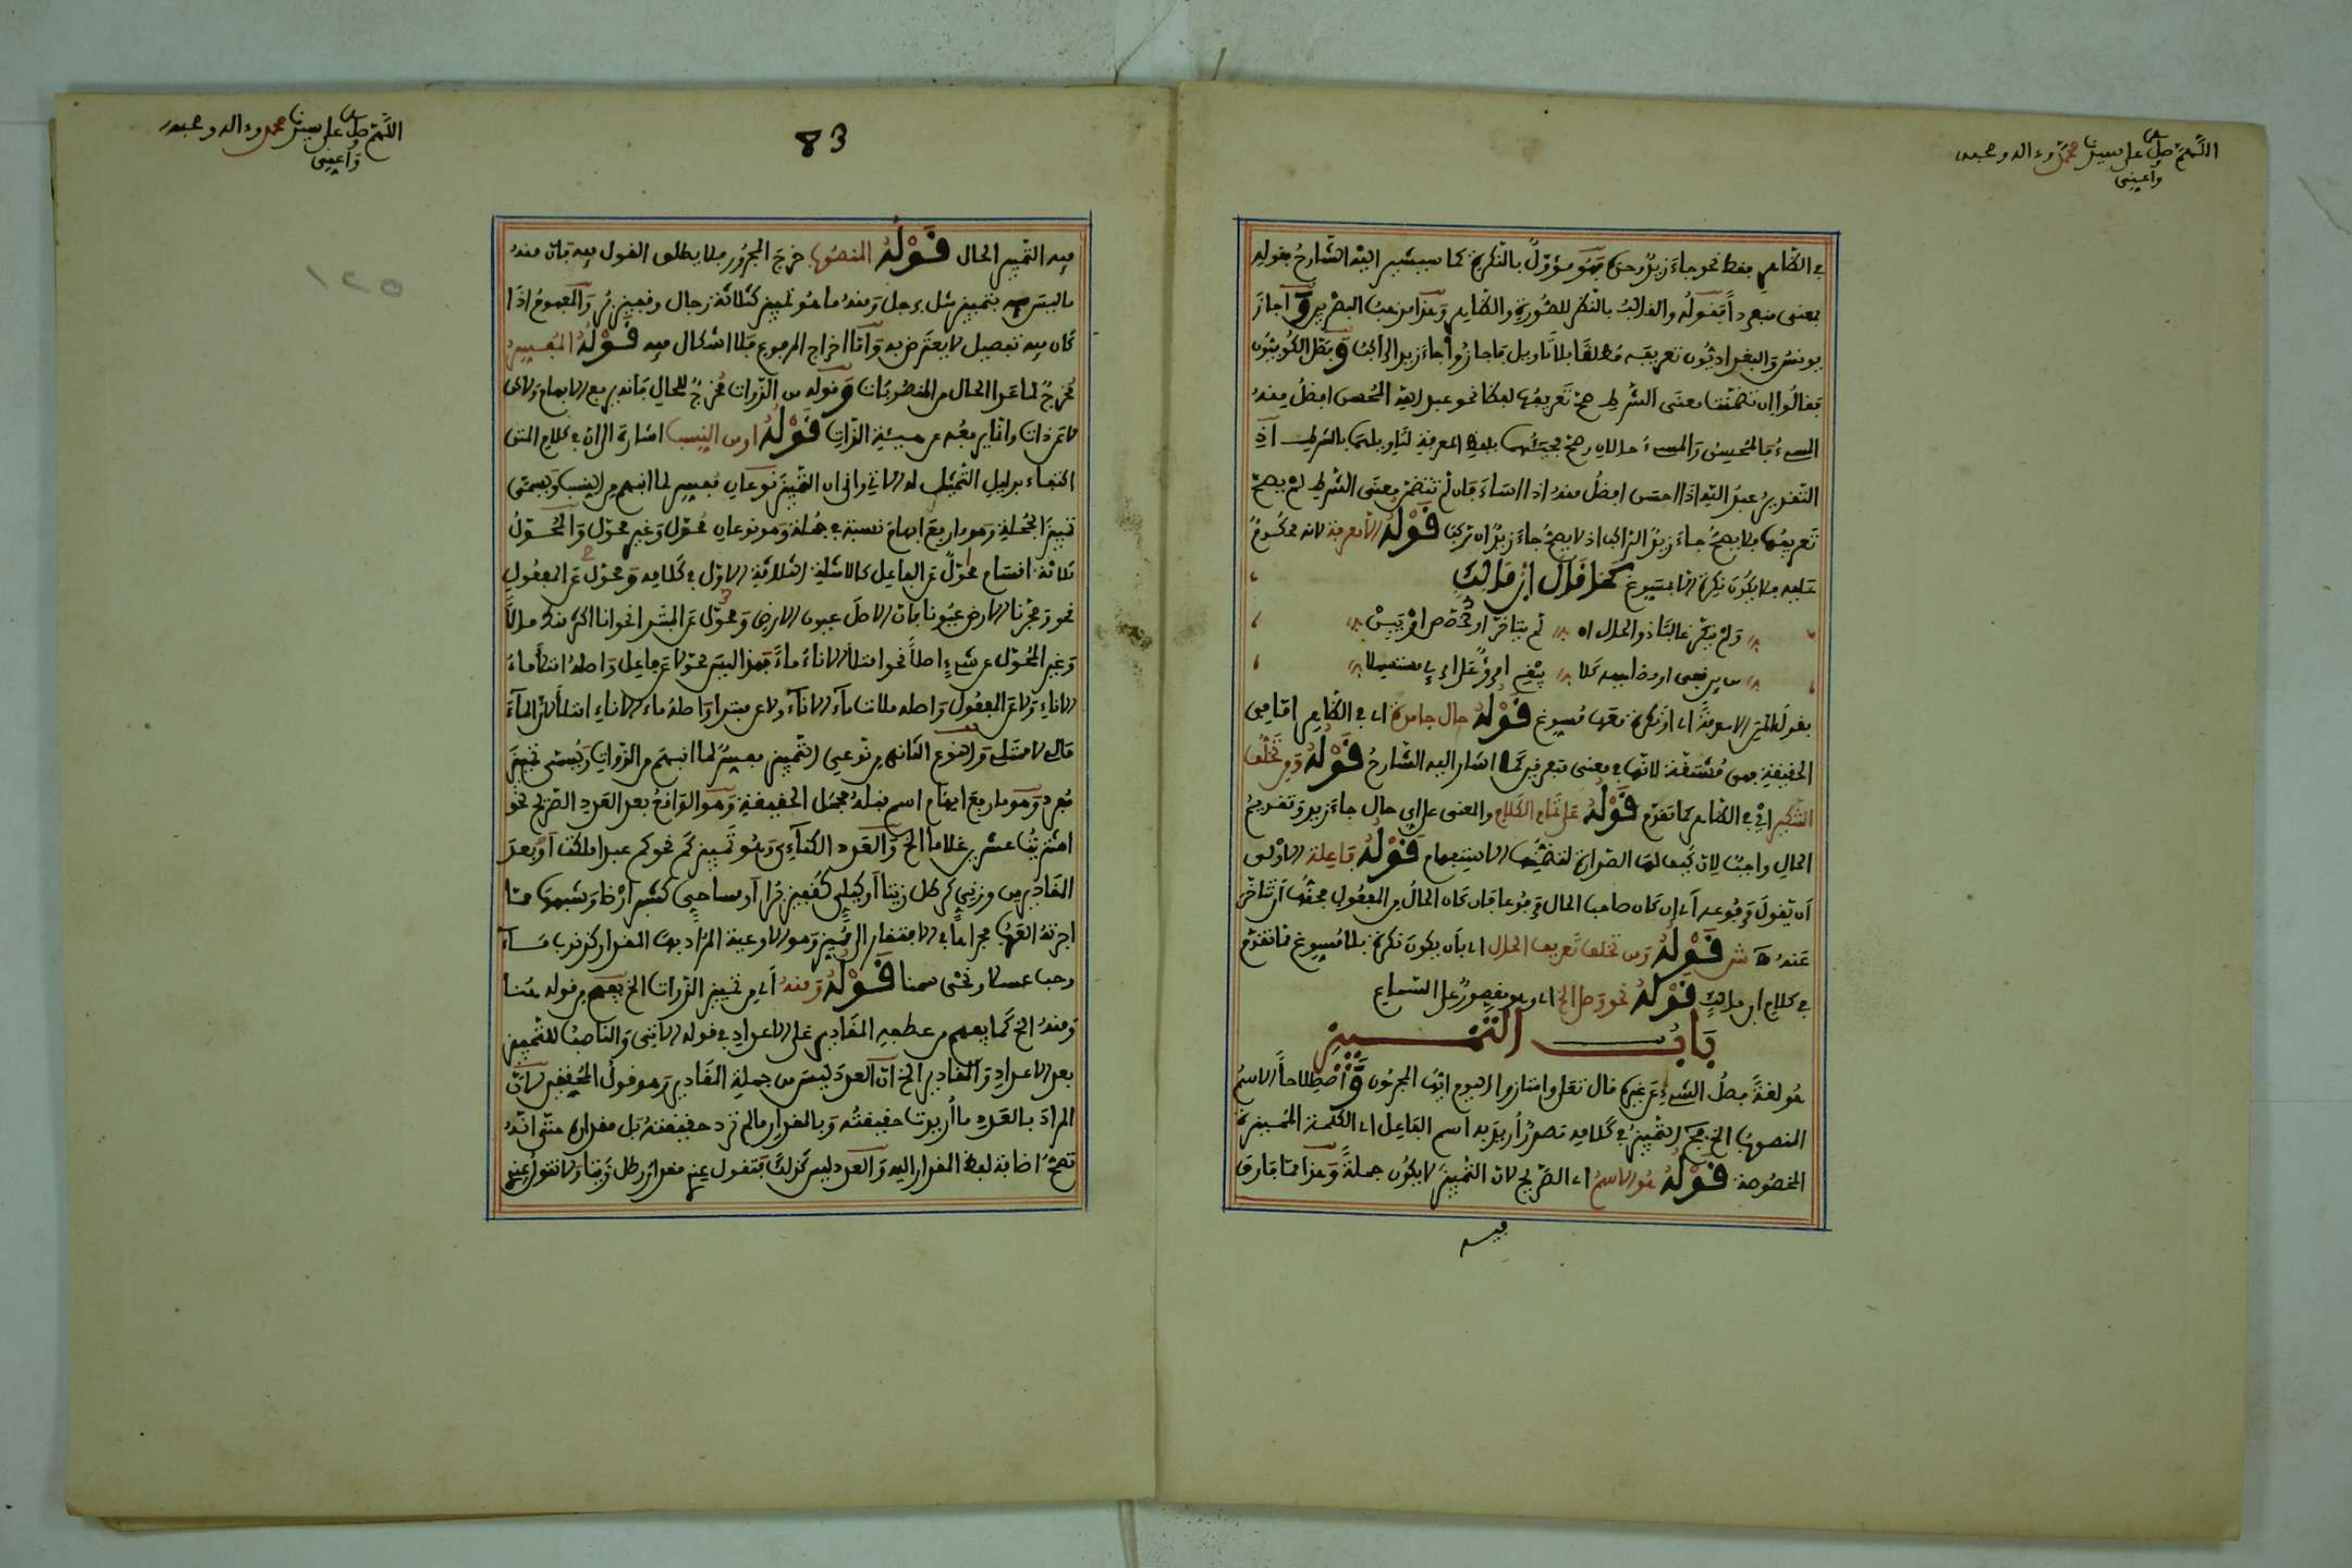 اللهم صل على سيدنا محمد وءاله وصحبه
وأعني
في الظاهر فقط نحو جاء زيد وحده فهو مؤول بالنكرة كما سيشير اليه الشارح بقوله
بمعنى منفردا فقوله والغالب بالنظر للصورة والظاهر وهذا مذهب البصريين وأجاز
يونس والبغداديون تعريفه مطلقا بلا تاويل فاجازوا جاء زيد الراكب وفصل الكوفيون
فقالوا ان تضمنت معنى الشرط صح تعريفها لفظا نحو عبد الله المحسن افضل منه
المسيء فالمحسن والمسيء حالان وصح مجيئهما بلفظ المعرفة لتاويلهما بالشرط اذ
التقدير عبد الله اذا احسن افضل منه اذا اساء فان لم تتضمن معنى الشرط لم يصح
تعريفها فلا يصح جاء زيد الراكب اذ لا يصح جاء زيد ان ركب قوله الا معرفة لانه محكوم
عليه فلا يكون نكرة الا بمسوغ كما قال ابن مالك
ولم ينكر غالبا ذو الحال ان لم يتاخر او يخصص او يبن
من بعد نفي او مضاهيه كلا يبغ امرؤ على امرئ مستسهلا
قوله حال جامدة اي في الظاهر اما في
الحقيقة فهي مشتقة لانها في معنى متعرفين كما اشار اليه الشارح قوله ومن تخلف
التنكير اي في الظاهر كما تقدم قوله على تمام الكلام والمعنى على اي حال جاء زيد وتقديم
الحال واجب لان كيف لها الصدارة لتضمنها الاستفهام قوله فاعلة الاولى
ان تقول وقوعه اي ان كان صاحب الحال مرفوعا فان كان الحال من المفعول فحقها ان تتاخر
عنه ه ش قوله ومن تخلف تعريف الحال اي بان يكون نكرة بلا مسوغ مما تقدم
في كلام ابن مالك قوله نحو وصلى الخ اي وهو مقصور على السماع
باب التمييز
هو لغة فصل الشيء عن غيره قال تعلى وامتازوا اليوم ايها المجرمون واصطلاحا الاسم
المنصوب الخ فمن التمييز في كلامه مصدر اريد به اسم الفاعل اي الكلمة المميزة
المخصوصة قوله هو الاسم اي الصريح لان التمييز لا يكون جملة وهذا مما فارق
فيه
اللهم صل على سيدنا محمد وءاله وصحبه
وأعني
83
١٢٥
فيه التمييز الحال قوله المنصوب خرج المجرور فلا يطلق القول فيه فان منه
ما ليس بتمييز مثل برجل ومنه ما هو تمييز كثلاثة رجال وقفيز بر والمفهوم اذا
كان فيه تفصيل لا يعترض به واما اخراج المرفوع فلا اشكال فيه قوله المفسر
مخرج لما عدا الحال من المنصوبات وقوله من الذوات مخرج للحال فانه يرفع الابهام لاكن
لا عن ذات وانما يرفعه عن هيئة الذات قوله او من النسب اشارة الى ان في كلام المتن
اكتفاء بدليل التمثيل له الاتي والى ان التمييز نوعان مفسر لما انبهم من النسب ويسمى
تمييز الجملة وهو ما رفع ابهام نسبة في جملة وهو نوعان محول وغير محول والمحول
ثلاثة اقسام محول عن الفاعل كالامثلة الثلاثة الاول في كلامه ومحول عن المفعول
نحو وفجرنا الارض عيونا فان الاصل عيون الارض ومحول عن المبتدا نحو انا اكثر منك مالا
وغير المحول عن شيء اصلا نحو امتلا الاناء ماء فهذا ليس محولا عن فاعل واصله امتلأ ماء
الاناء ولا عن المفعول واصله ملات ماء الاناء ولا عن مبتدا واصله ماء الاناء امتلأ لان الماء
مالئ لا ممتلئ والنوع الثاني من نوعي التمييز مفسر لما انبهم من الذوات ويسمى تمييز
مفرد وهو ما رفع ابهام اسم قبله مجمل الحقيقة وهو الواقع بعد العدد الصريح نحو
اشتريت عشرين غلاما الخ والعدد الكناءي وهو تمييز كم نحو كم عبدا ملكت او بعد
المقادير من وزني كرطل زيتا او كيلي كقفيز برا او مساحي كشبر ارضا وشبهها مما
اجرته العرب مجراها في الافتقار الى مميز وهو الاوعية المراد بها المقدار كذنوب ماء
وحب عسلا ونحي سمنا قوله ومنه اي من تمييز الذوات الخ يفهم من قوله هنا
ومنه الخ كما يفهم من عطفه المقادير على الاعداد في قوله الاتي والناصب للتمييز
بعد الاعداد والمقادير الخ ان العدد ليس من جملة المقادير وهو قول المحققين لان
المراد بالعدد ما اريدت حقيقته وبالمقدار ما لم ترد حقيقته بل مقداره حتى انه
تصح اضافة لفظ المقدار اليه والعدد ليس كذلك فتقول عندي مقدار رطل زيتا ولا تقول عندي